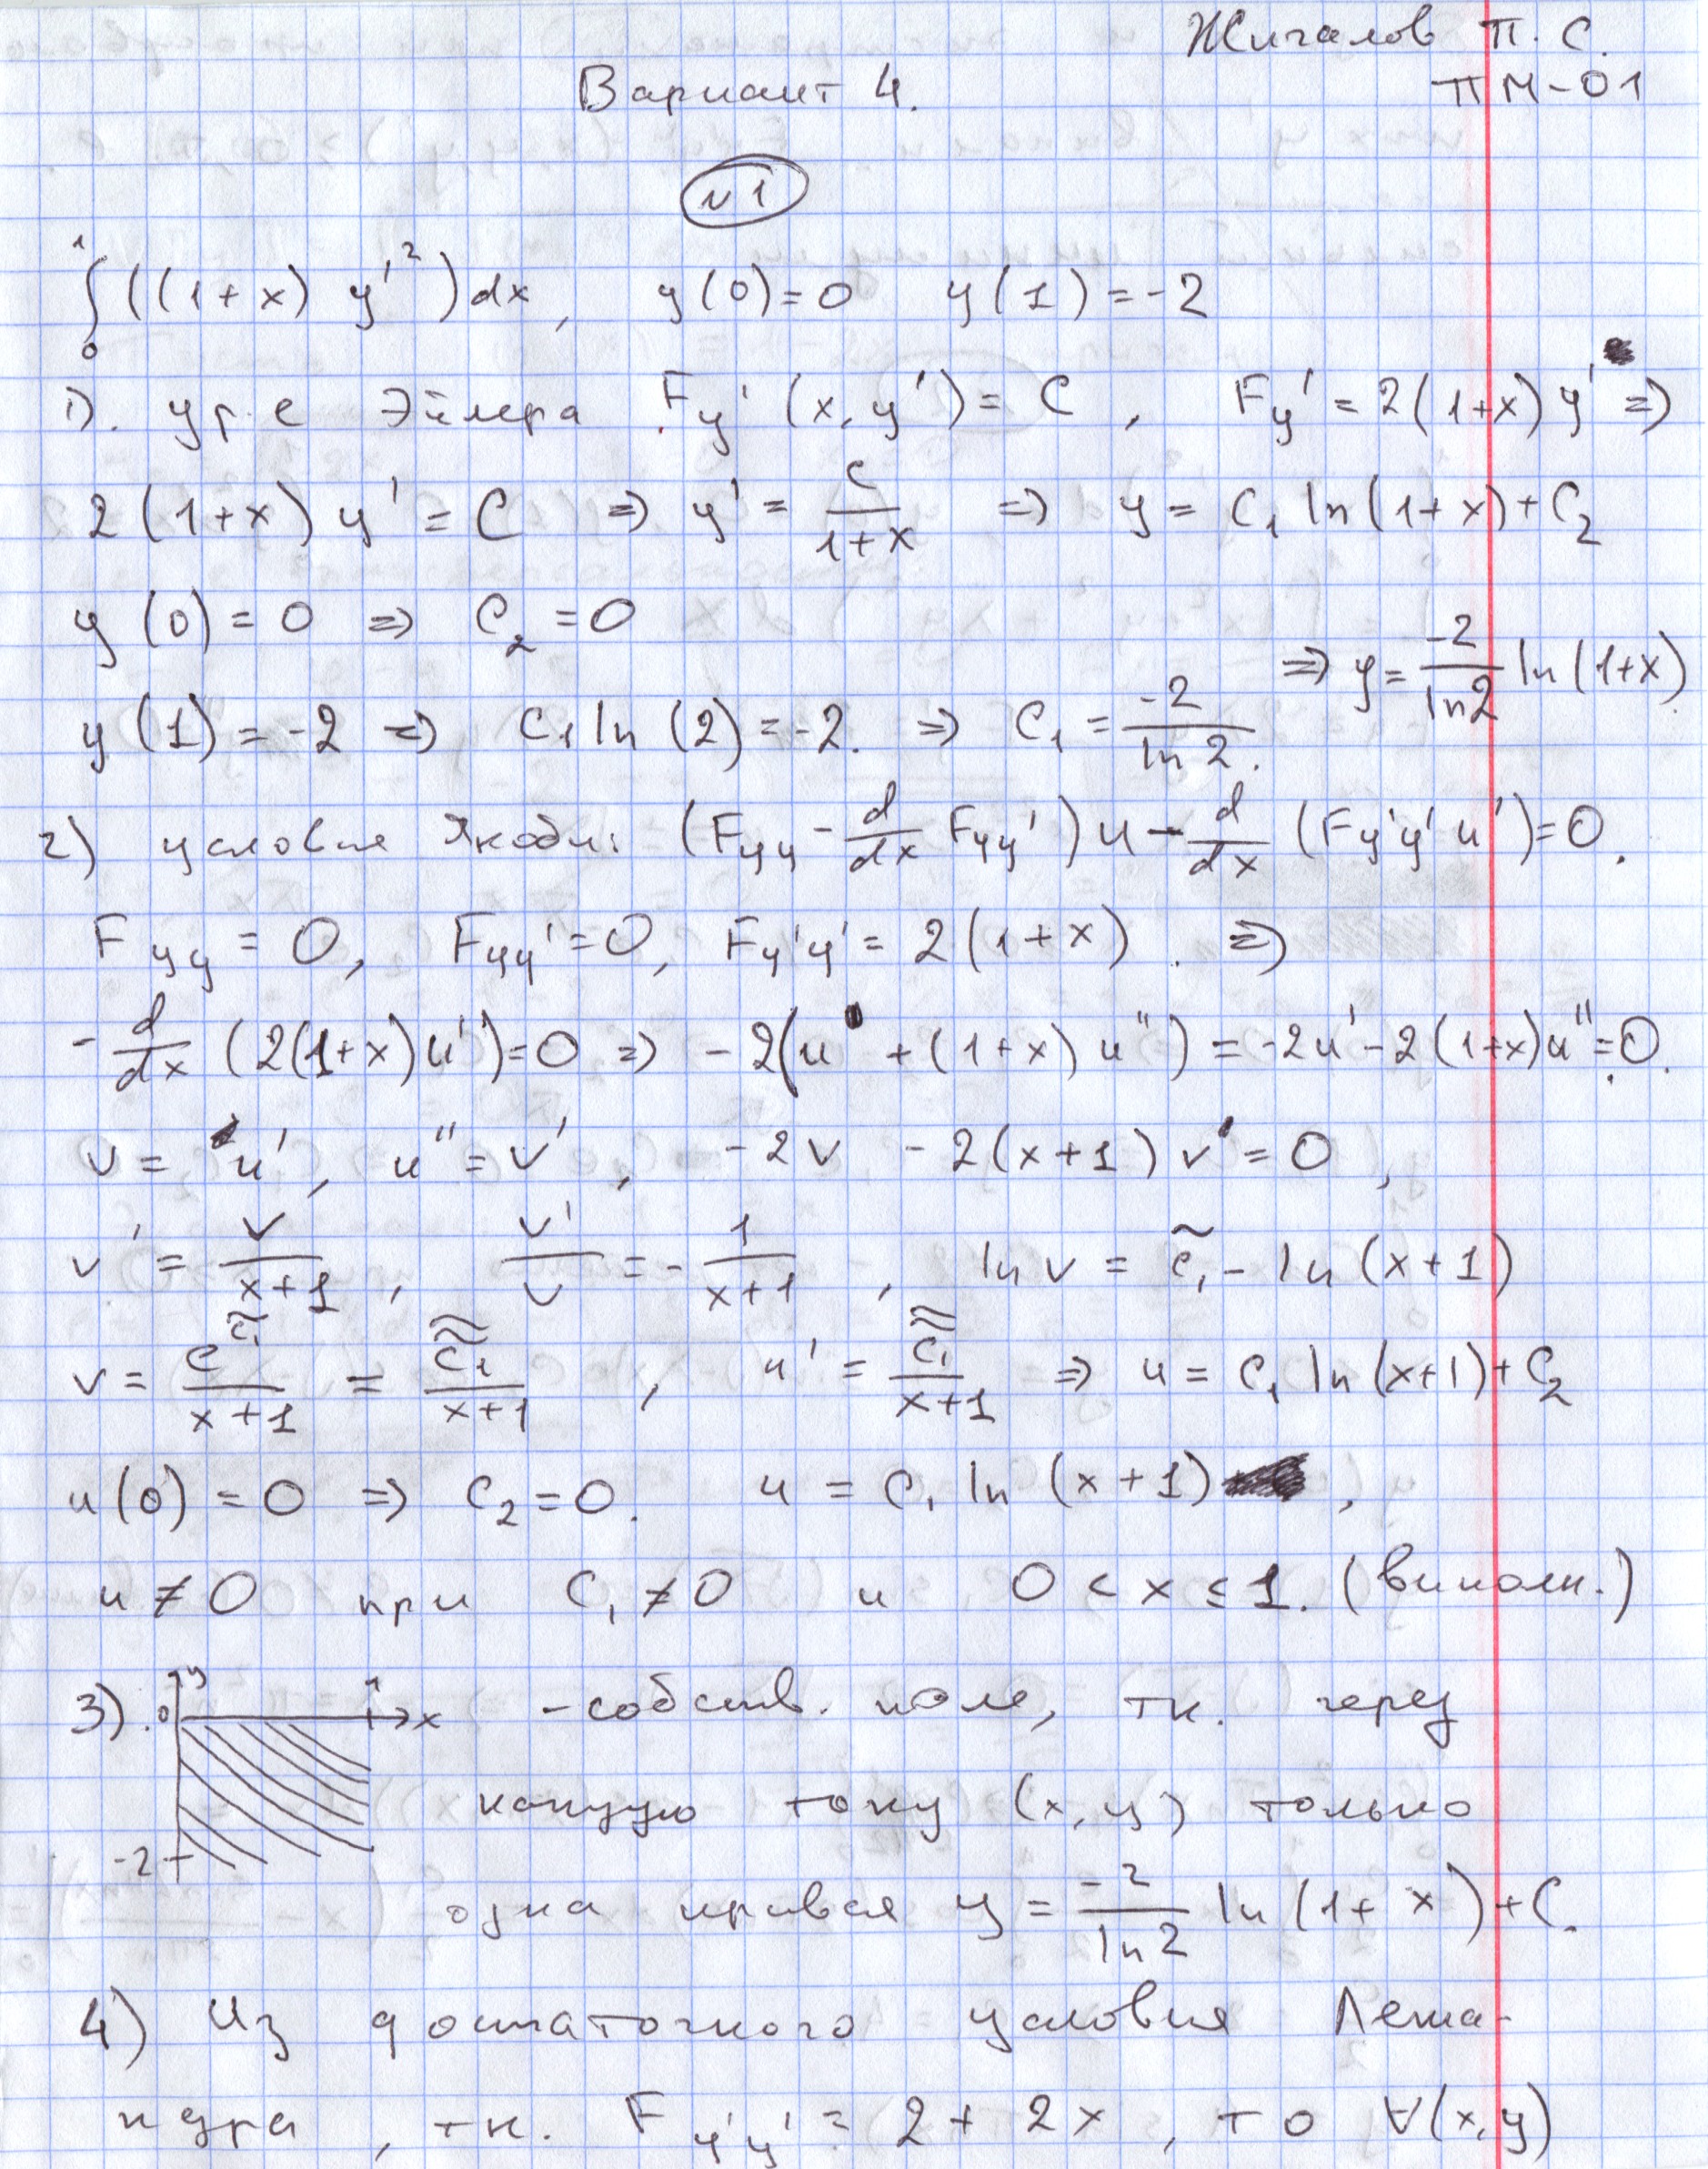 Жигалов П. С.
ПМ-01
Вариант 4.
N 1
∫₀¹ ((1+x) y'²) dx, y(0)=0 y(1)=-2
1). ур-е Эйлера Fy'(x, y') = C, Fy' = 2(1+x) y' ⇒
2(1+x) y' = C ⇒ y' = C/(1+x) ⇒ y = C₁ ln(1+x)+C₂
y(0) = 0 ⇒ C₂ = 0
y(1) = -2 ⇒ C₁ ln(2) = -2. ⇒ C₁ = -2/ln 2. ⇒ y = -2/ln2 ln(1+x).
2) условие Якоби: (Fyy - d/dx Fyy') u - d/dx (Fy'y' u') = 0.
Fyy = 0, Fyy' = 0, Fy'y' = 2(1+x). ⇒
- d/dx (2(1+x)u') = 0 ⇒ -2(u' + (1+x) u'') = -2u' - 2(1+x)u'' = 0.
v = u', u'' = v', -2v - 2(x+1) v' = 0,
v' = v/(x+1), v'/v = - 1/(x+1), ln v = c̃₁ - ln(x+1)
v = e^c̃₁/(x+1) = c̃̃₁/(x+1), u' = c̃̃₁/(x+1) ⇒ u = C₁ ln(x+1)+C₂
u(0) = 0 ⇒ C₂ = 0. u = C₁ ln(x+1),
u ≠ 0 при C₁ ≠ 0 и 0 < x ≤ 1. (выполн.)
3). 0 y 1 x -2 - собств. поле, тк. через
каждую точку (x, y) только
одна кривая y = -2/ln2 ln(1+x)+C.
4) Из достаточного условия Лежа-
ндра, тк. Fy'y' = 2 + 2x, то ∀(x, y)